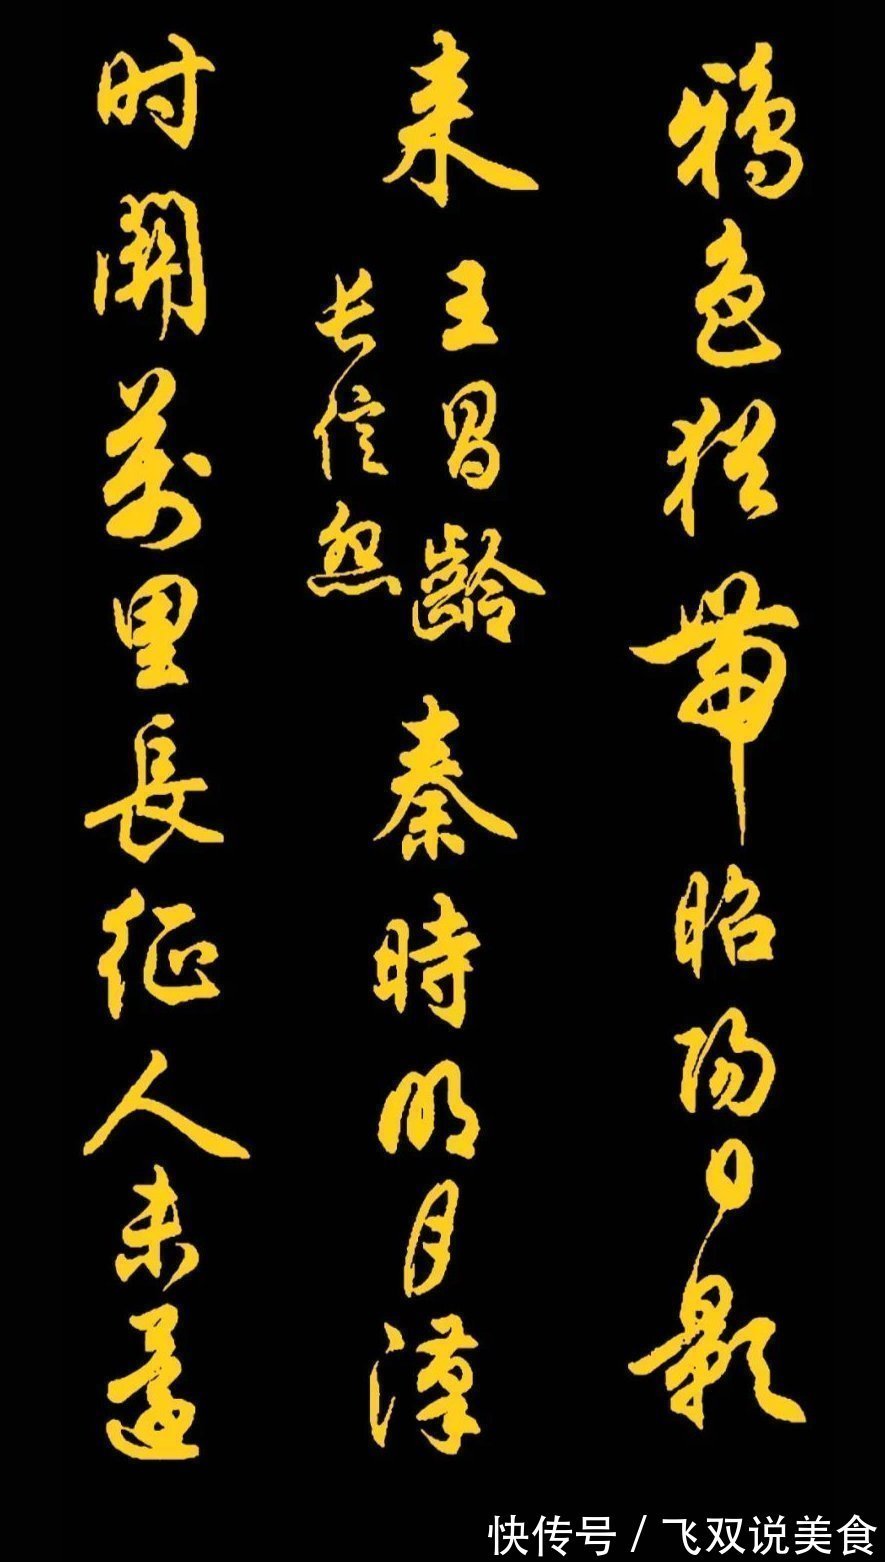 鴉色猶帶昭陽日影
来
王昌齡
长信怨
秦時明月漢
时關萬里長征人未還
快传号 / 飞双说美食